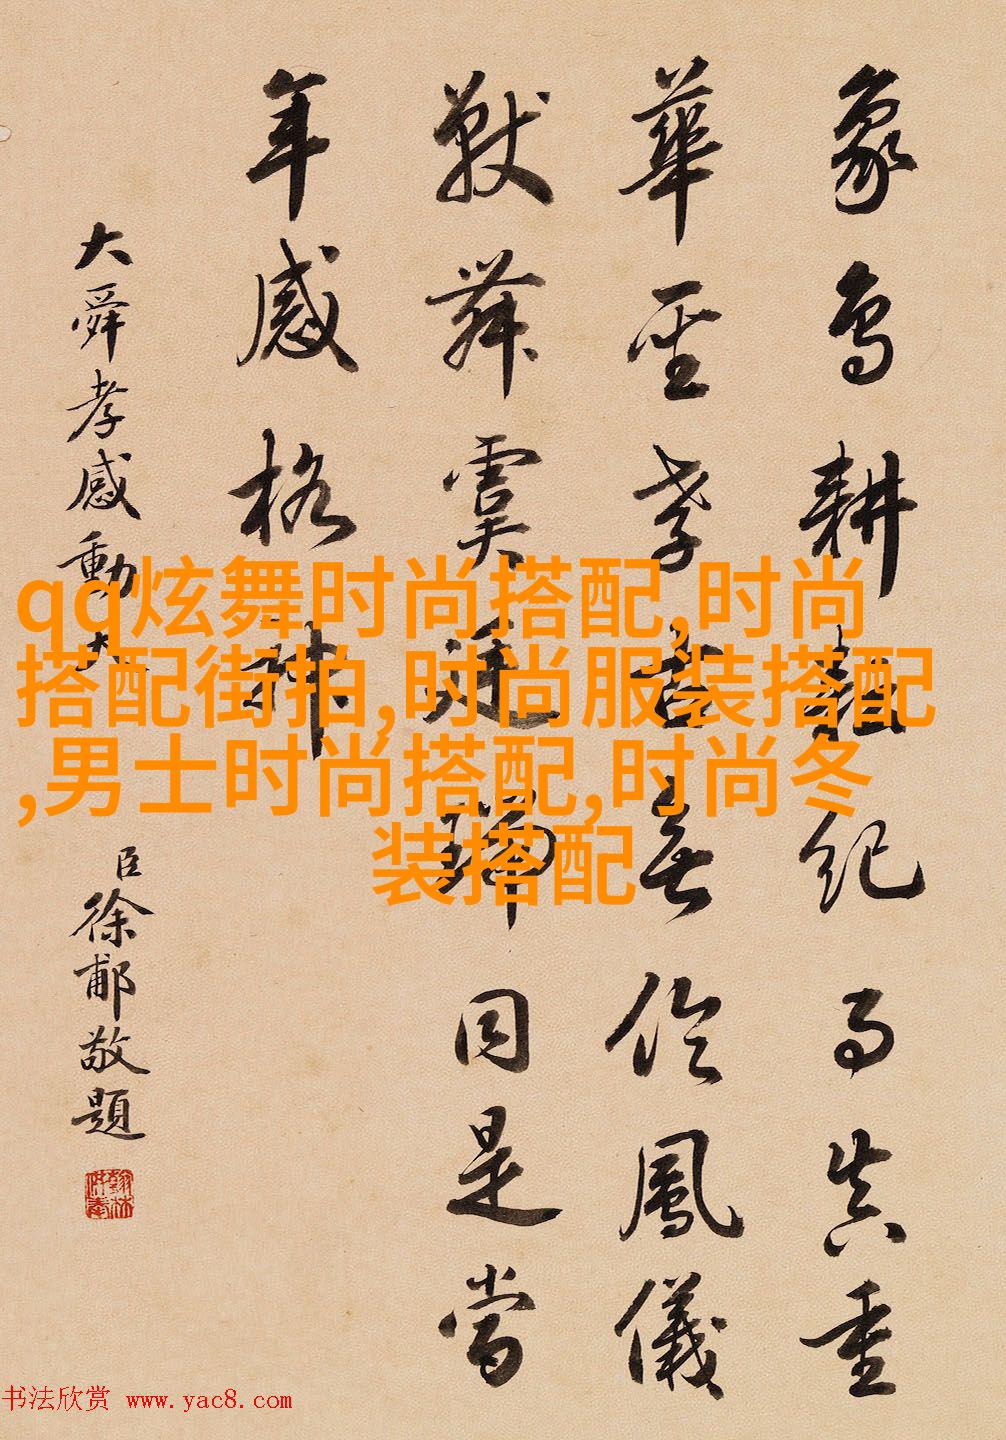 象鳥耕耘紀事真重
華至孝古無倫鳳儀
獸舞虞廷瑞同是當
年感格神
大舜孝感動天
臣徐郙敬題
qq炫舞时尚搭配,时尚
搭配街拍,时尚服装搭配
,男士时尚搭配,时尚冬
装搭配
书法欣赏 www.yac8.com